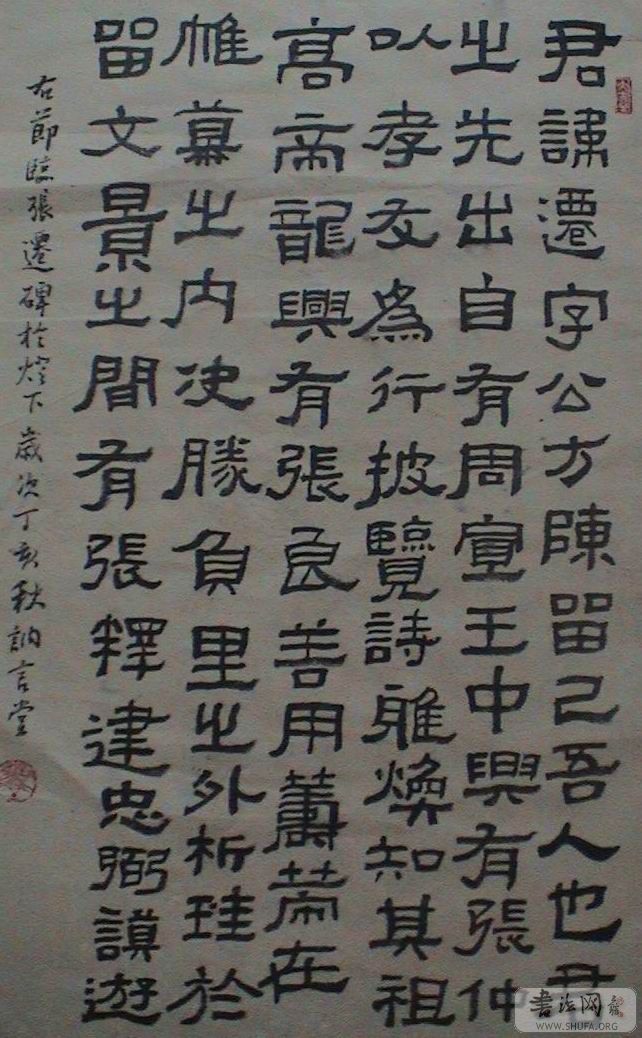 君諱遷字公方陳留己吾人也君
之先出自有周宣王中興有張仲
以孝友爲行披覽詩雅煥知其祖
高帝龍興有張良善用籌策在
帷幕之内决勝負里之外析珪於
留文景之間有張釋建忠弼謨遊
右節臨張遷碑於燈下歲次丁亥秋訥言堂
書法网
WWW.SHUFA.ORG